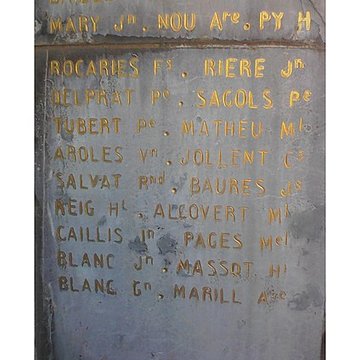 MARY Jn, NOU Are, PY H
ROCARIES Fs, RIERE Jn
DELPRAT Pe, SAGOLS Pe
TUBERT Pe, MATHEU Ml
AROLES Vn, JOLLENT Cs
SALVAT Rnd, BAURES Js
REIG Hi, ALCOVERT Ml
CAILLIS Jn, PAGES Mel
BLANC Jn, MASSOT Hi
BLANC Gn, MARILL Are